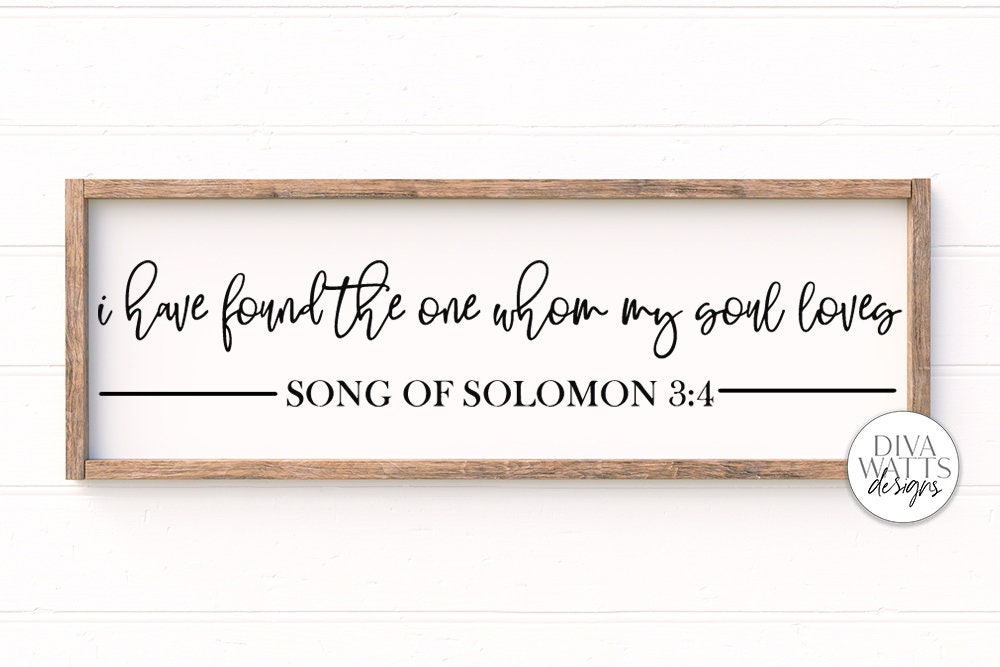 i have found the one whom my soul loves
SONG OF SOLOMON 3:4
DIVA
WATTS
designs